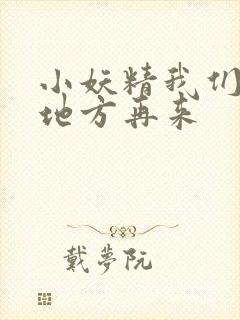 小妖精我们
地方再来
戴夢阮